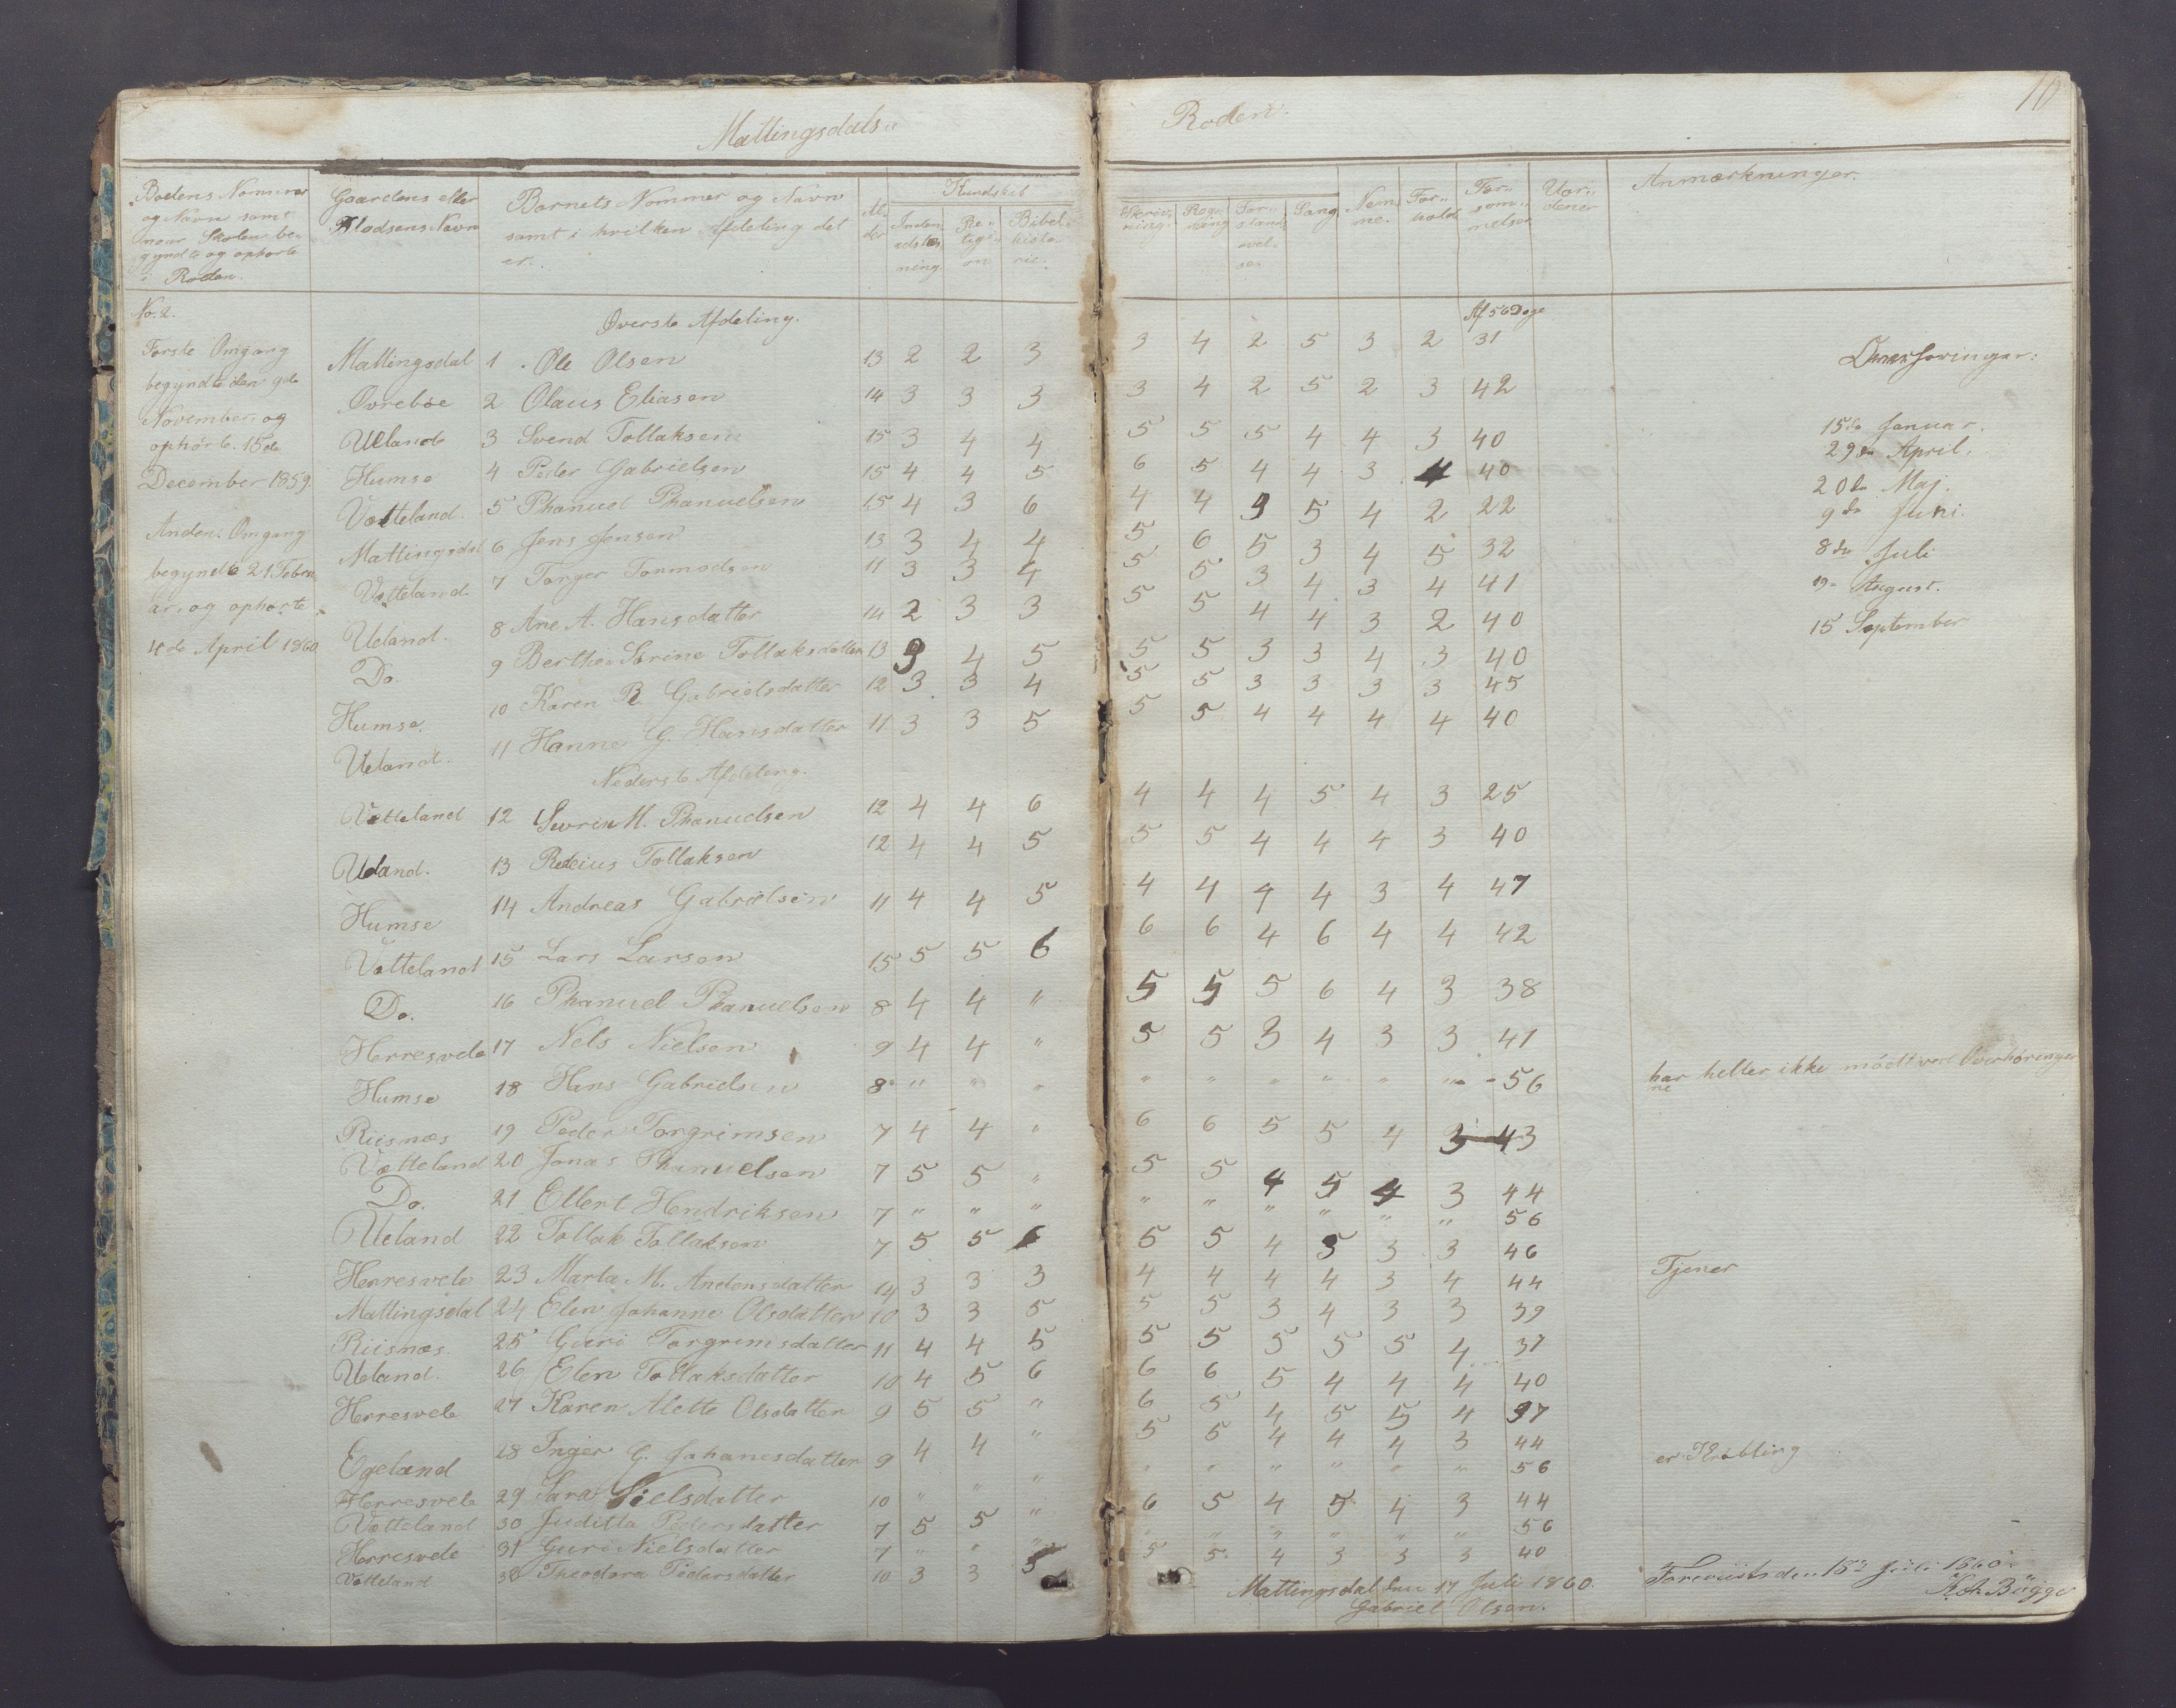 10
Mattingsdals
Roden.
Rodens Nommer og Navn samt naar Skolen begyndte og ophørte i Roden.
Gaardens eller Pladsens Navn
Barnets Nommer og Navn samt i hvilken Afdeling det er.
Alder
Kundskab
Indenadslæsning
Religion
Bibelhistorie.
Skrivning.
Regning
Forstandsøvelse.
Sang
Nemme.
Forhold
Forsømmelser
Anmærkninger.
No. 2.
Øverste Afdeling.
Af 56 Dage
Første Omgang
begyndte den 9de
November, og
ophørte 15de
December 1859.
Anden Omgang
begyndte 21 Febru
ar, og ophørte
4de April 1860
Mattingsdal 1 Ole Olsen 13 2 2 3 3 4 2 5 3 2 31
Øvrebøe 2 Olaus Eliasen 14 3 3 3 3 4 2 5 2 3 42
Ueland 3 Svend Tollaksen 15 3 4 4 5 5 5 4 4 3 40
Humse 4 Peder Gabrielsen 15 4 4 5 6 5 4 4 3 4 40
Vatteland. 5 Phanuel Phanuelsen 15 4 3 6 4 4 3 5 4 2 22
Mattingsdal 6 Jens Jensen 13 3 4 4 5 6 5 3 4 5 32
Vatteland. 7 Torger Tonmodsen 11 3 3 4 5 5 3 4 3 4 41
Ueland. 8 Ane A. Hansdatter 14 2 3 3 5 5 4 4 3 2 40
Do. 9 Berthe Serine Tollaksdatter 13 3 4 5 5 5 3 3 4 3 40
Humse. 10 Karen R. Gabrielsdatter 12 3 3 4 5 5 3 3 3 3 45
Ueland. 11 Hanne G. Hansdatter 11 3 3 5 5 5 4 4 4 4 40
Overhøringer:
15de Januar.
29de April.
20de Maj.
9de Juni.
8de Juli
19 August.
15 September
Nederste Afdeling.
Vatteland 12 Sevrin M. Phanuelsen 12 4 4 6 4 4 4 5 4 3 25
Ueland. 13 Tollaksen 12 4 4 5 5 5 4 4 4 3 40
Humse 14 Andreas Gabrielsen 11 4 4 5 4 4 4 4 3 4 47
Vatteland 15 Lars Larsen 15 5 5 6 6 6 4 6 4 4 42
Do. 16 Phanuel Phanuelsen 8 4 4 " 5 5 5 6 4 3 38
Herresvele 17 Nels Nielsen 9 4 4 " 5 5 3 4 3 3 41
Humse 18 Hans Gabrielsen 8 " " " " " " " " " 56 har heller ikke mødt ved Overhøringerne
Riisnæs 19 Peder Torgrimsen 7 4 4 " 6 6 5 5 4 3 43
Vatteland 20 Jonas Phanuelsen 7 5 5 " 5 5 4 5 4 3 44
Do. 21 Ellert Hendriksen 7 " " " " " " " " " 56
Ueland 22 Tollak Tollaksen 7 5 5 6 5 5 4 3 3 3 46
Herresvele 23 Marta M. Andersdatter 14 3 3 3 4 4 4 4 3 4 44 Tjener
Mattingsdal 24 Elen Johanne Olsdatter 10 3 3 5 5 5 3 4 3 3 39
Riisnæs. 25 Guri Torgrimsdatter 11 4 4 5 5 5 5 5 5 4 37
Ueland. 26 Elen Tollaksdatter 10 4 5 6 6 6 5 4 4 4 40
Herresvele 27 Karen Mette Olsdatter 9 5 5 " 6 5 4 5 5 4 37
Egeland 28 Inger G. Johanesdatter 9 4 4 " 5 5 4 4 4 3 44
Herresvele 29 Sara Nielsdatter 10 " " " " " " " " " 56 er Krøbling
Vatteland 30 Juditta Pedersdatter 7 5 5 " 6 5 4 5 4 3 44
Herresvele 31 Guri Nielsdatter 7 " " " " " " " " " 56
Vatteland 32 Theodora Pedersdatter 10 3 3 5 5 5 4 3 3 3 40
Mattingsdal den 17 Juli 1860.
Gabriel Olsen.
Foreviist den 18de Juli 1860.